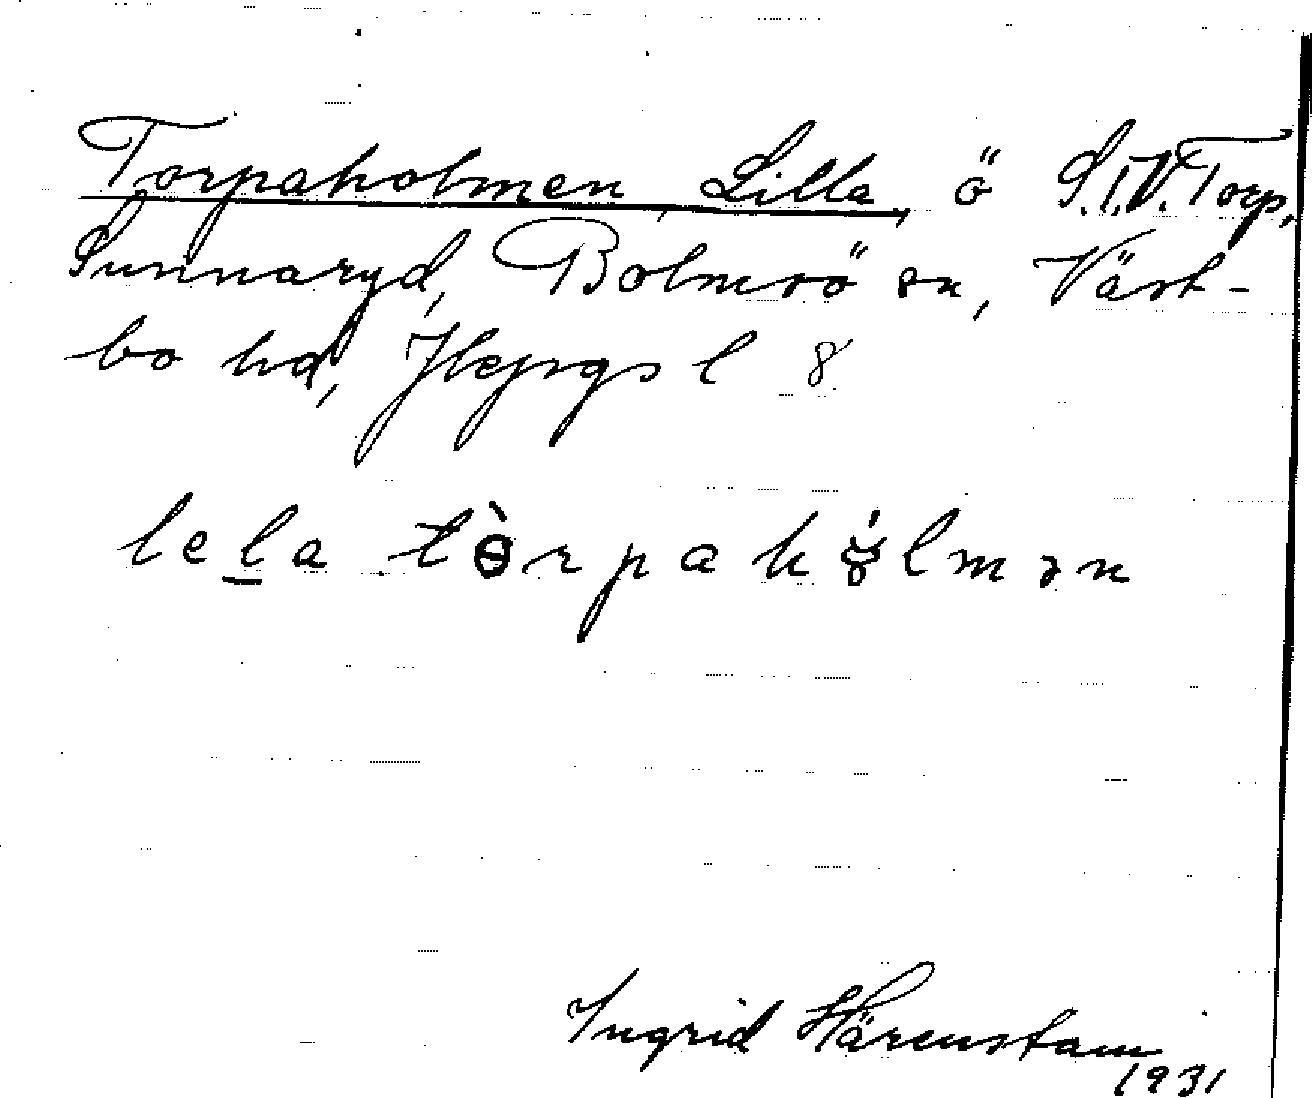 Torpaholmen, Lilla, ö S.I.V. Torp,
Sunnaryd, Bolmsö sn, Väst-
bo hd, l 8
lela tɵ̀rpahålmən
Ingrid Härenstam
1931